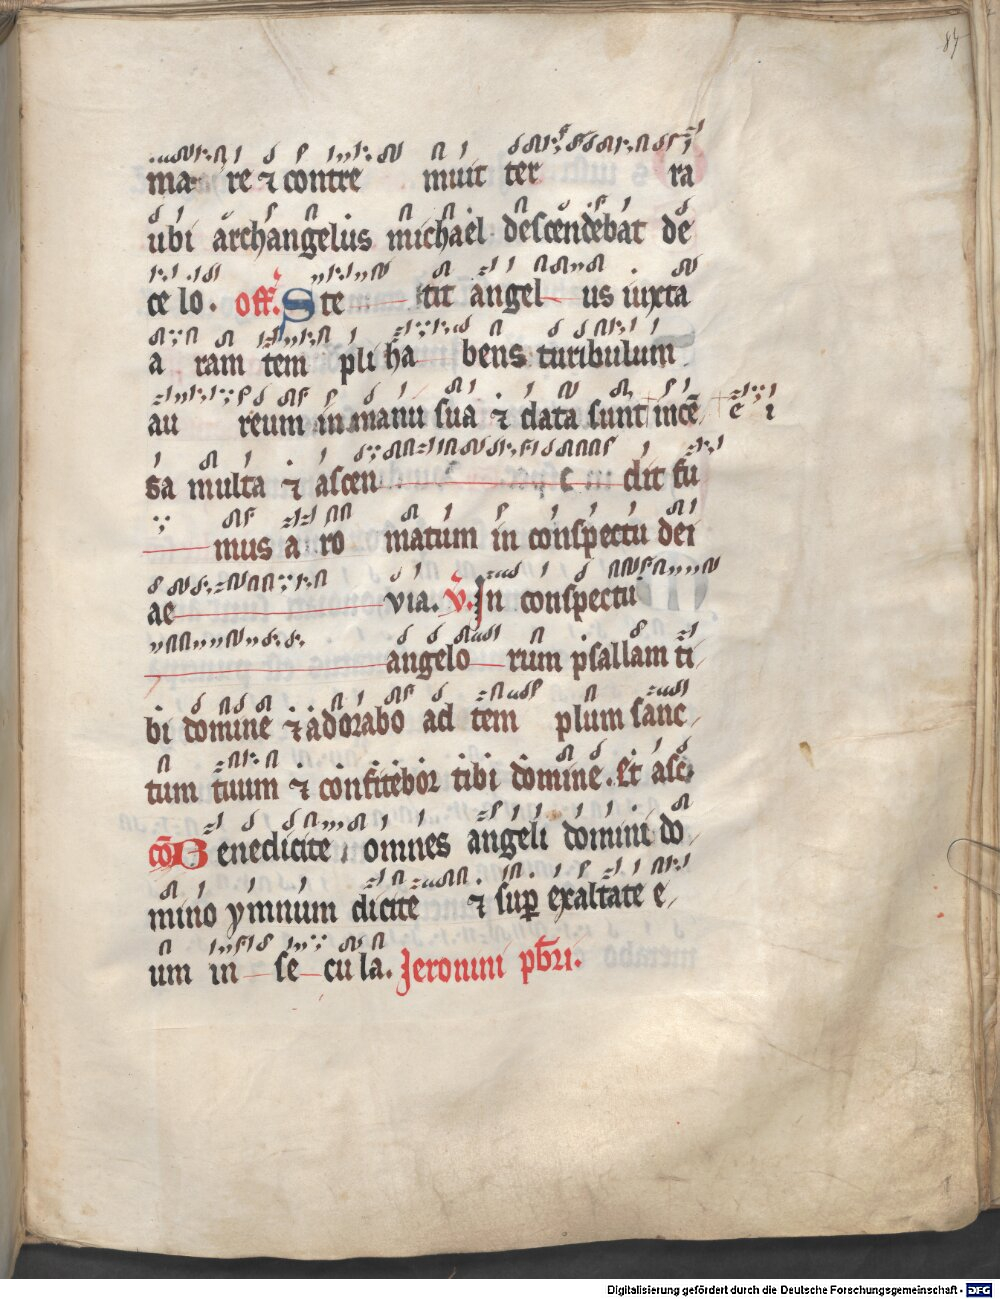 84
mare ⁊ contre muit ter ra
ubi archangelus michael descendebat de
ce lo. off. Ste tit angel us iuxta
a ram tem pli ha bens turibulum
au reum in manu sua ⁊ data sunt incē e i
sa multa ⁊ ascen e dit fu
mus a ro matum in conspectu dei
ae via. v̄. In conspectu
angelo rum psallam ti
bi domine ⁊ adorabo ad tem plum sanc
tum tuum ⁊ confitebor tibi domine. Et asc̄
cō Benedicite omnes angeli domini do
mino ymnum dicite ⁊ suꝑ exaltate e
um in se cu la. Jeronini pb̄ri.
Digitalisierung gefördert durch die Deutsche Forschungsgemeinschaft - DFG